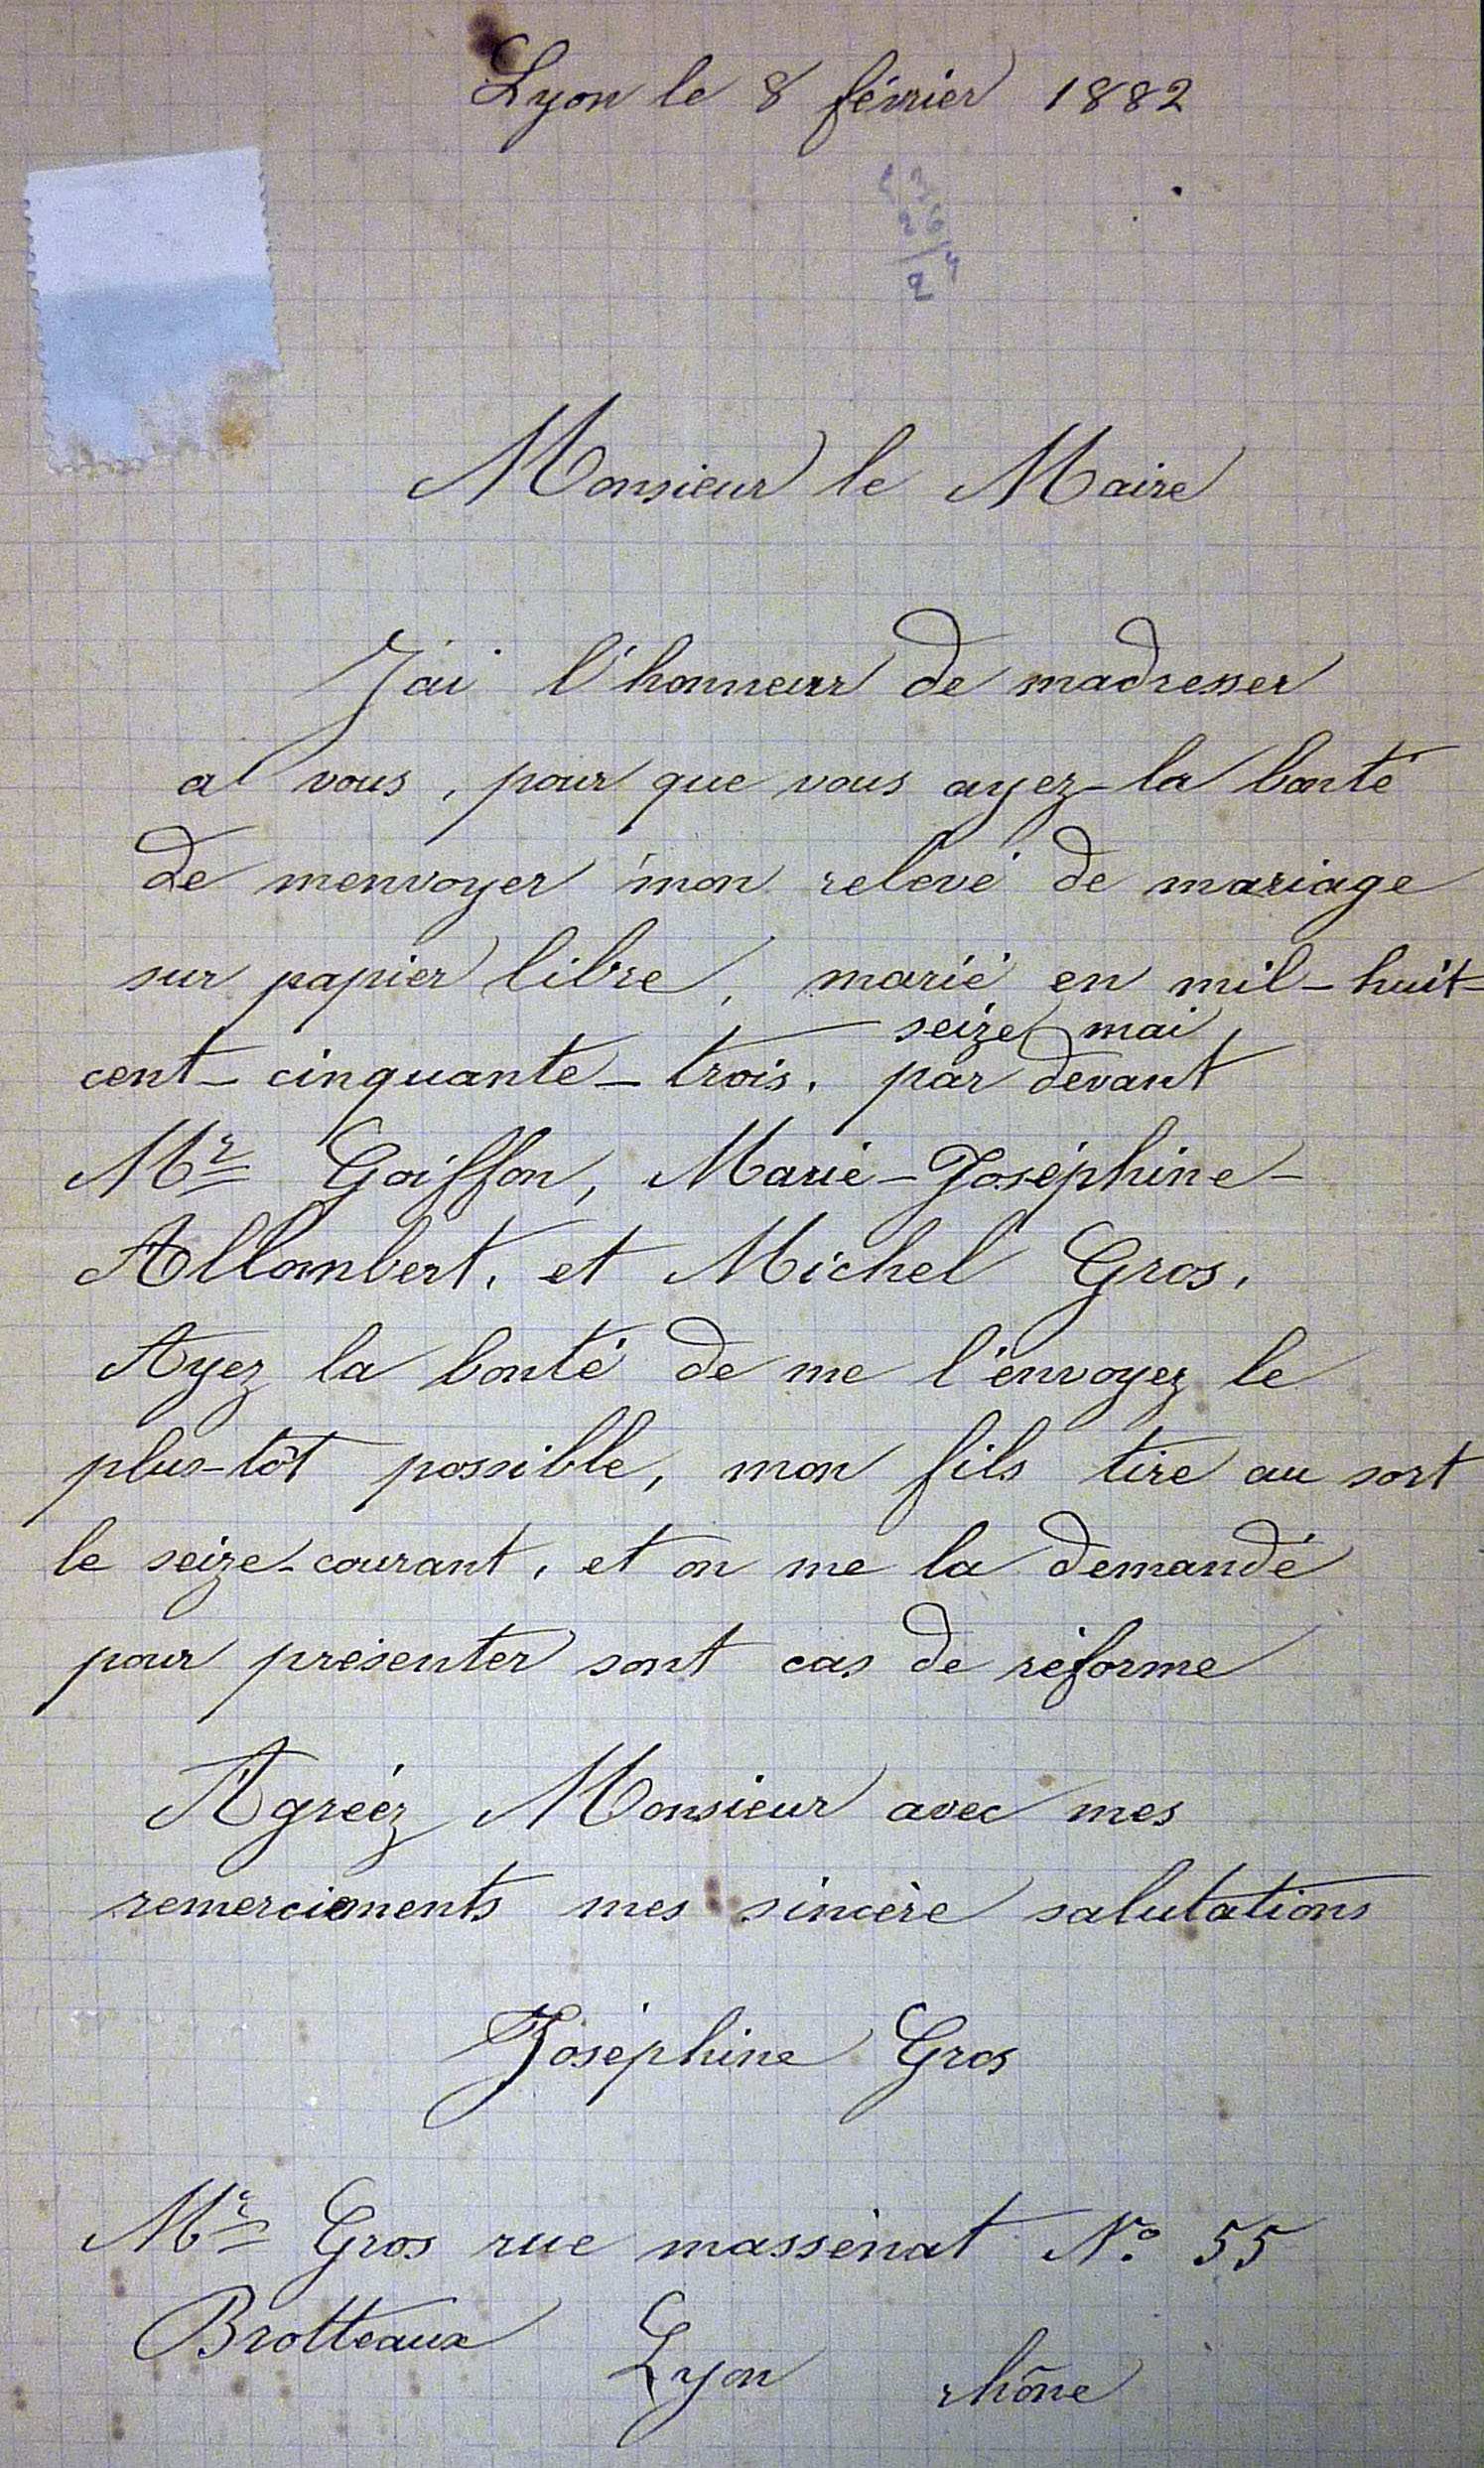 Lyon le 8 février 1882
Monsieur le Maire
J'ai l'honneur de madresser
a vous, pour que vous ayez-la bonté
de menvoyer mon relevé de mariage
sur papier libre, marié en mil-huit-
seize mai
cent-cinquante-trois. par devant
Mr Goiffon, Marie-Joséphine-
Allombert, et Michel Gros,
Ayez la bonté de me l'envoyez le
plus-tôt possible, mon fils tire au sort
le seize-courant, et on me la demandé
pour présenter sont cas de réforme
Agréez Monsieur avec mes
remerciements mes sincère salutations
Joséphine Gros
Mr Gros rue massénat No 55
Brotteaux Lyon rhône